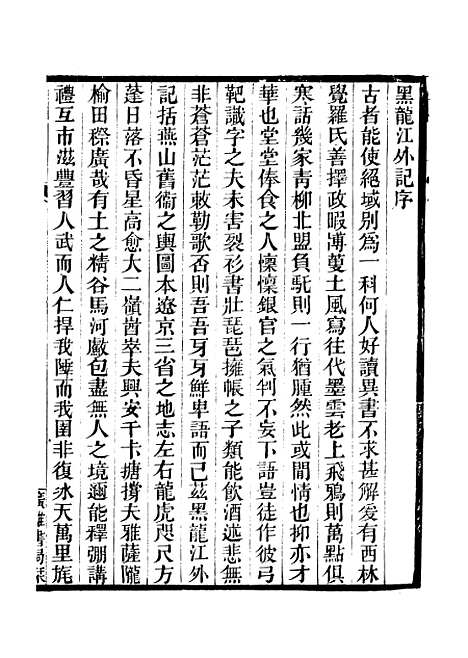 黑龍江外記序
古者能使絕域別為一科何人好讀異書不求甚解爰有西林
覺羅氏善擇政暇博蔓土風寫往代墨雲老上飛鴉則萬點俱
寒話幾家青柳北盟負馱則一行猶腫然此或閒情也抑亦才
華也堂堂俸食之人懍懍銀官之氣判不妄下語豈徒作彼弓
靶識字之夫未害裂衫書壯琵琶擁帳之子類能飲酒述悲無
非蒼蒼茫茫敕勒歌否則吾吾牙牙鮮卑語而已茲黑龍江外
記括燕山舊衞之輿圖本遼京三省之地志左右龍虎咫尺方
蓬日落不昏星高愈大二嶺崷崒夫興安千卡搪撐夫雅薩隴
榆田穄廣哉有土之精谷馬河巖包盡無人之境邇能釋弸講
禮互市滋豐習人武而人仁捍我陲而我圉非復冰天萬里旄
廣雅書局栞